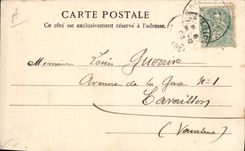 CARTE POSTALE
Ce côté est exclusivement réservé à l'adresse.
Monsieur Louis
Avenue de la Gare N=1
Cavaillon
(Vaucluse)